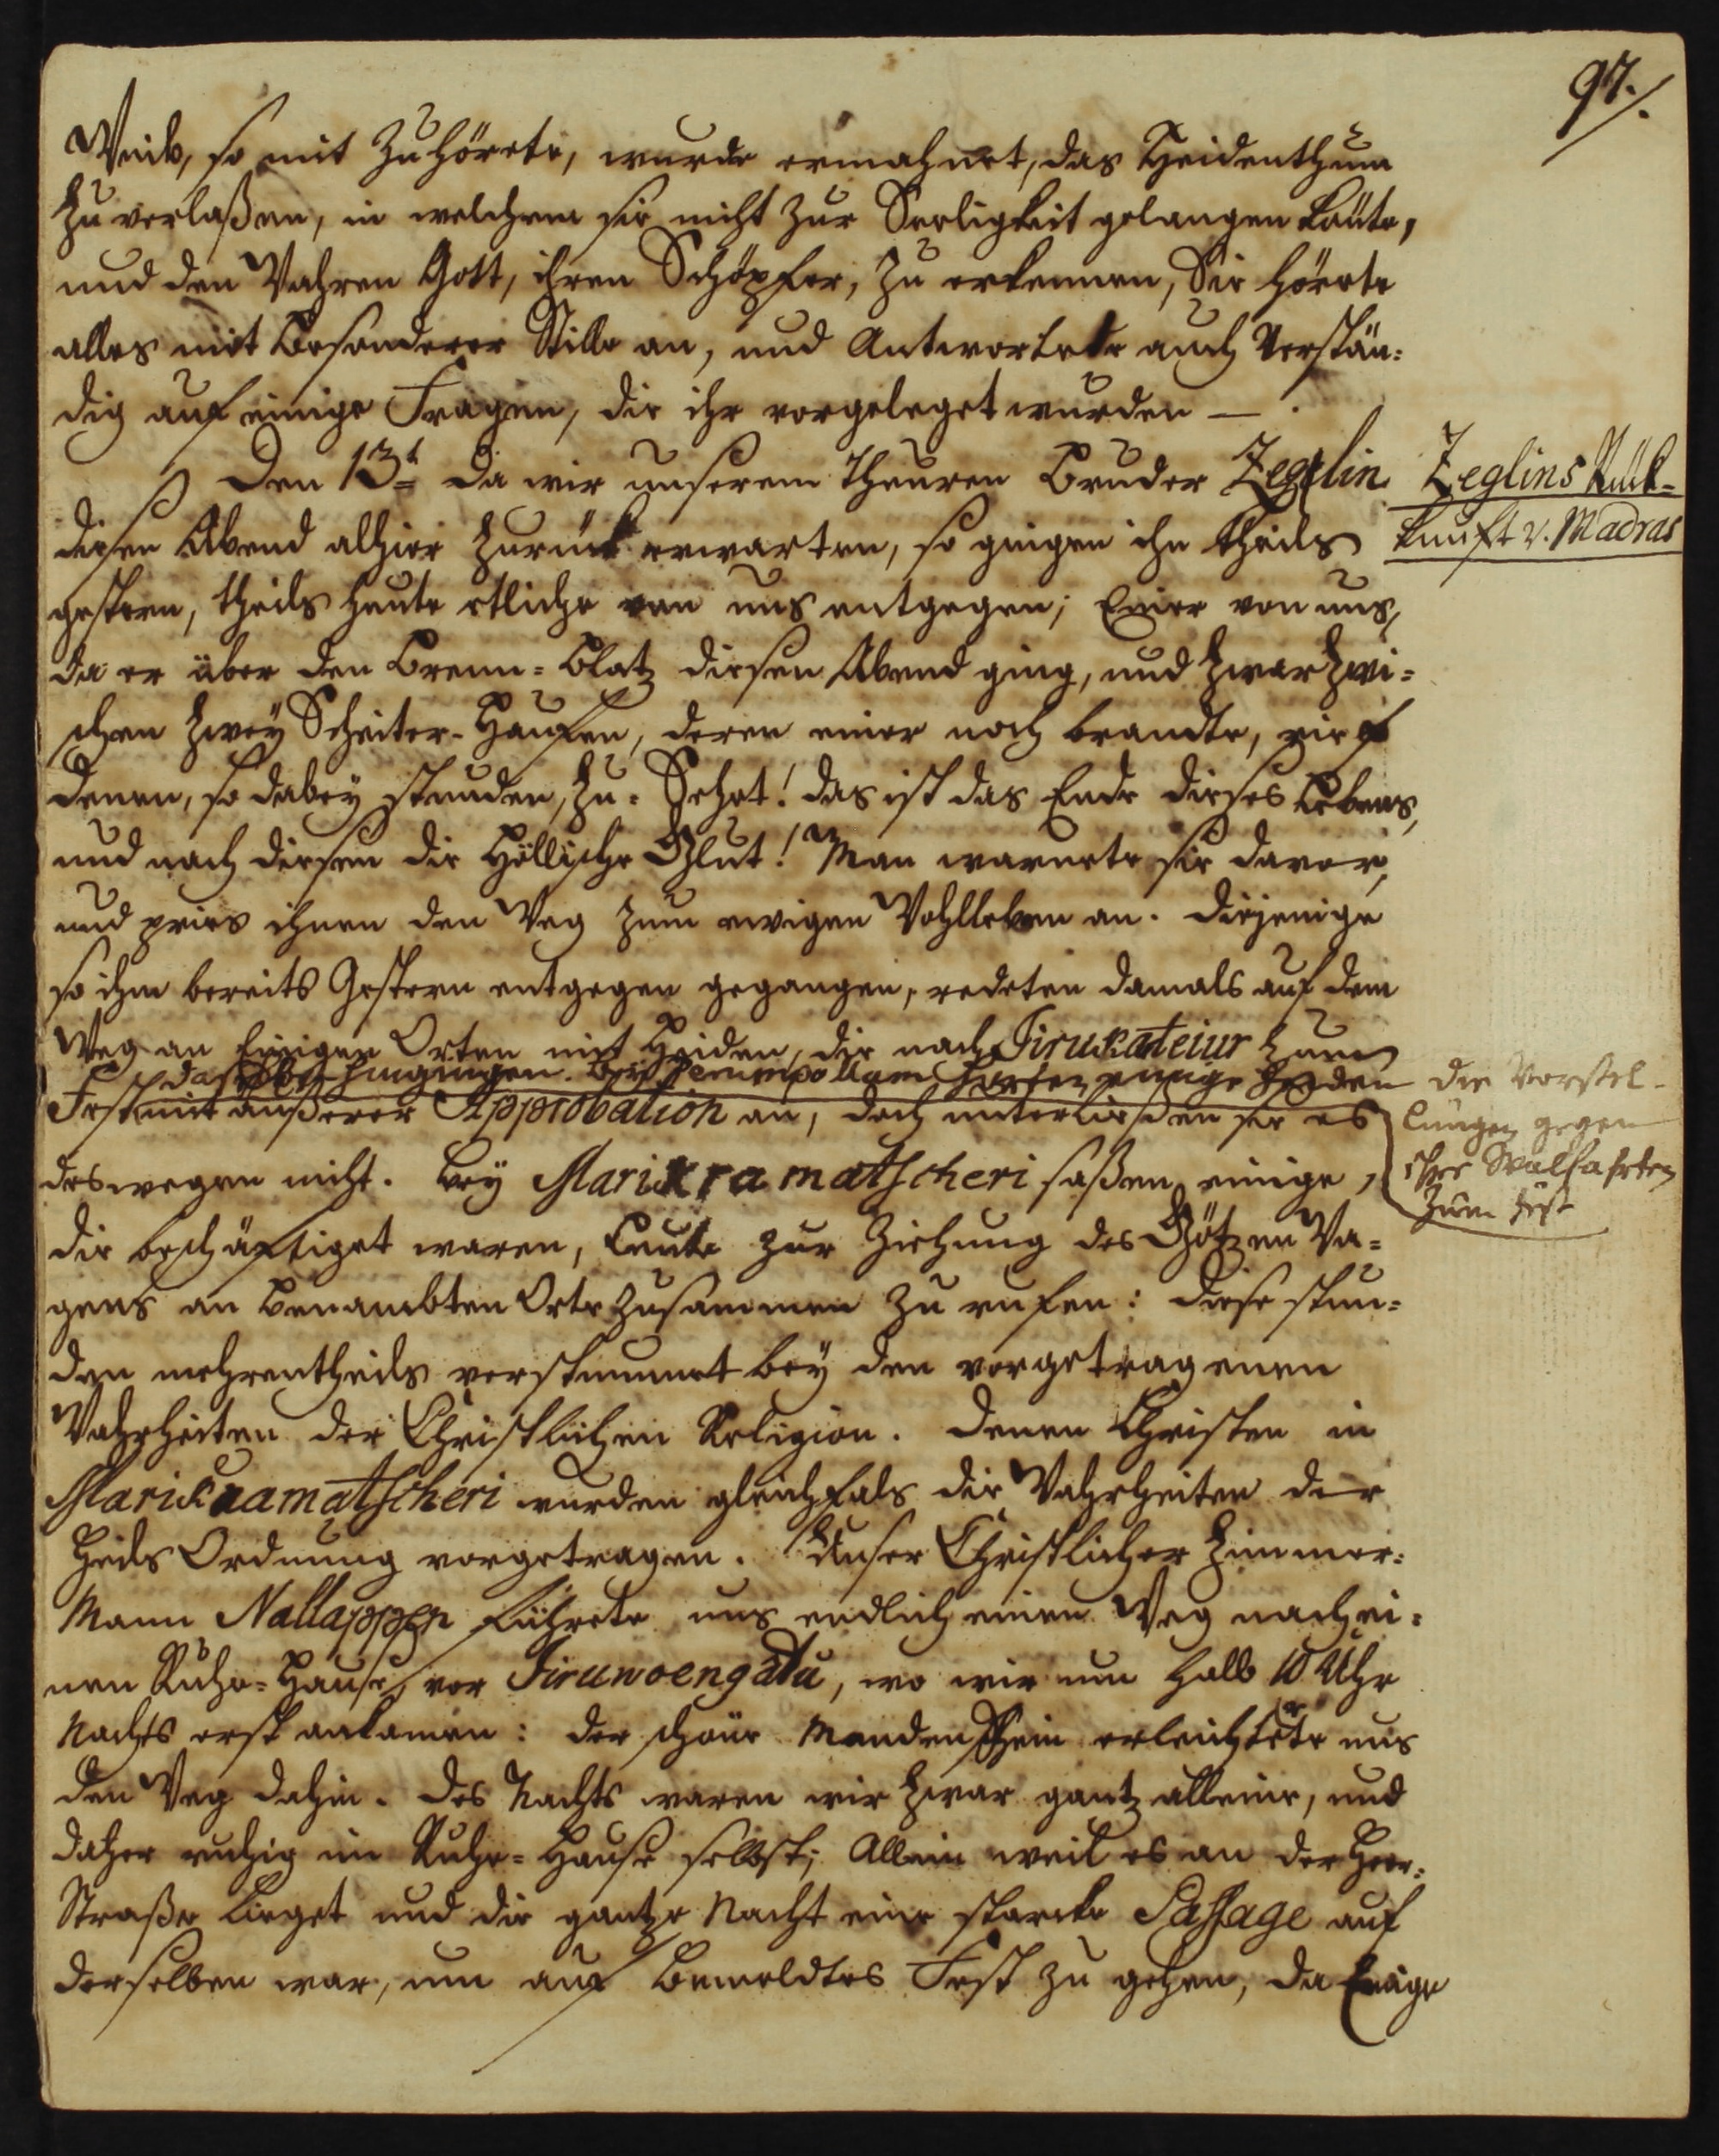 97.
Weib, so mit zuhörete, wurde ermahnet, das Heidenthum
zu verlaßen, in welchem sie nicht zur Seeligkeit gelangen könte,
und den Wahren Gott, ihren Schöpfer, zu erkennen, Sie hörete
alles mit Besonderer Stille an, und Antwortete auch Verstän-
dig auf einige Fragen, die ihr vorgeleget wurden —.
Den 13t da wir unserem theuren Bruder Zeglin
diesen Abend alhier zurück erwarten, so gingen ihm theils
gestern, theils heute etliche von uns entgegen; Einer von uns,
da er über den Brenn-Platz diesen Abend ging, und zwar zwi-
schen zwey Scheiter-Haufen, deren einer noch brandte, rief
denen, so dabey stunden, zu: Sehet! das ist das Ende dieses Lebens,
und nach diesem die Höllische Glut! Man warnete sie davor,
und pries ihnen den Weg zum ewigen Wohlleben an. Diejenige
so ihm bereits Gestern entgegen gegangen, redeten damals auf dem
Weg an Einigen Orten mit Heiden, die nach Tirukateiur zum
Fest daselbst hingingen. Bey Perumpollam hörten einige Heden die Vorstel-
lungen gegen
ihre Walfahrten
zum Fest
mit äußerer Approbation an, doch unterließen sie es
deswegen nicht. Bey Marikramatscheri saßen einige,
die beschäftiget waren, Leute zur Ziehung des Götzen Wa-
gens an benambten Orte zusammen zu rufen: diese stun-
den mehrentheils verstummet bey den vorgetragenen
Wahrheiten der Christlichen Religion. Denen Christen in
Marikramatscheri wurden gleichfals die Wahrheiten der
Heils Ordnung vorgetragen. Unser Christlicher Zimmer-
Mann Nallappen führete uns endlich einen Weg nach ei-
nem Ruhe-Hause, vor Tiruwoengadu, wo wir um halb 10 Uhr
Nachts erst ankamen: der schöne Mondenschein erleichterte uns
den Weg dahin. Des Nachts waren wir zwar gantz alleine, und
daher ruhig im Ruhe-Hause selbst; Allein weil es an der Heer-
Straße lieget und die gantze Nacht eine starcke Passage auf
derselben war, um auf bemeldtes Fest zu gehen, da Einige
Zeglins Rück-
kunft v. Madras